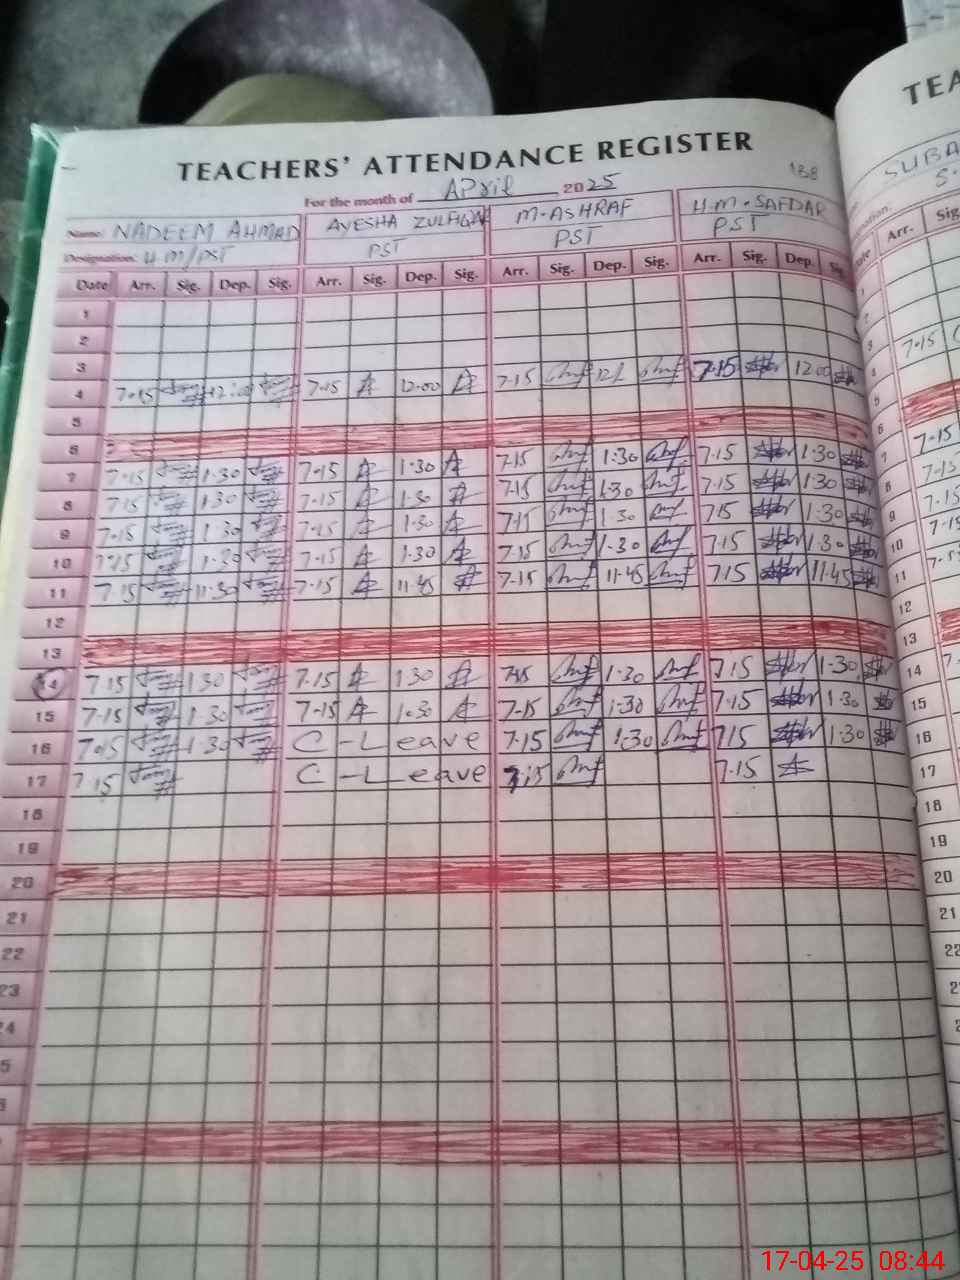 TEACHERS' ATTENDANCE REGISTER
138
For the month of April 2025
Name: NADEEM AHMAD AYESHA M. ASHRAF H.M. SAFDAR
Designation: H M/PST PST PST PST
Date Arr. Sig. Dep. Sig. Arr. Sig. Dep. Sig. Arr. Sig. Dep. Sig. Arr. Sig. Dep.
1
2
3
4 7.15 12:00 7.15 12.00 7.15 7.15 12.00
5
6
7 7.15 1.30 7.15 1.30 7.15 1:30 7.15 1.30
8 7.15 1.30 7.15 1.30 7.15 1.30 7.15 1.30
9 7.15 1.30 7.15 1.30 7.15 1.30 7.15 1.30
10 7.15 1.30 7.15 1.30 7.15 1.30 7.15 1.30
11 7.15 11.30 7.15 11.45 7.15 11.45 7.15 11.45
12
13
14 7.15 1.30 7.15 1.30 7.15 1.30 7.15 1.30
15 7.15 1.30 7.15 1.30 7.15 1.30 7.15 1.30
16 7.15 1.30 C-Leave 7.15 1.30 7.15 1.30
17 7.15 C-Leave 7.15 7.15
18
19
20
21
22
23
TEA
SUBA
S.
Arr. Sig
3 7.15
4
5
6
7 7.15
8 7.15
9 7.15
10 7.15
11 7.15
12
13
14 7.
15
16
17
18
19
20
21
17-04-25 08:44